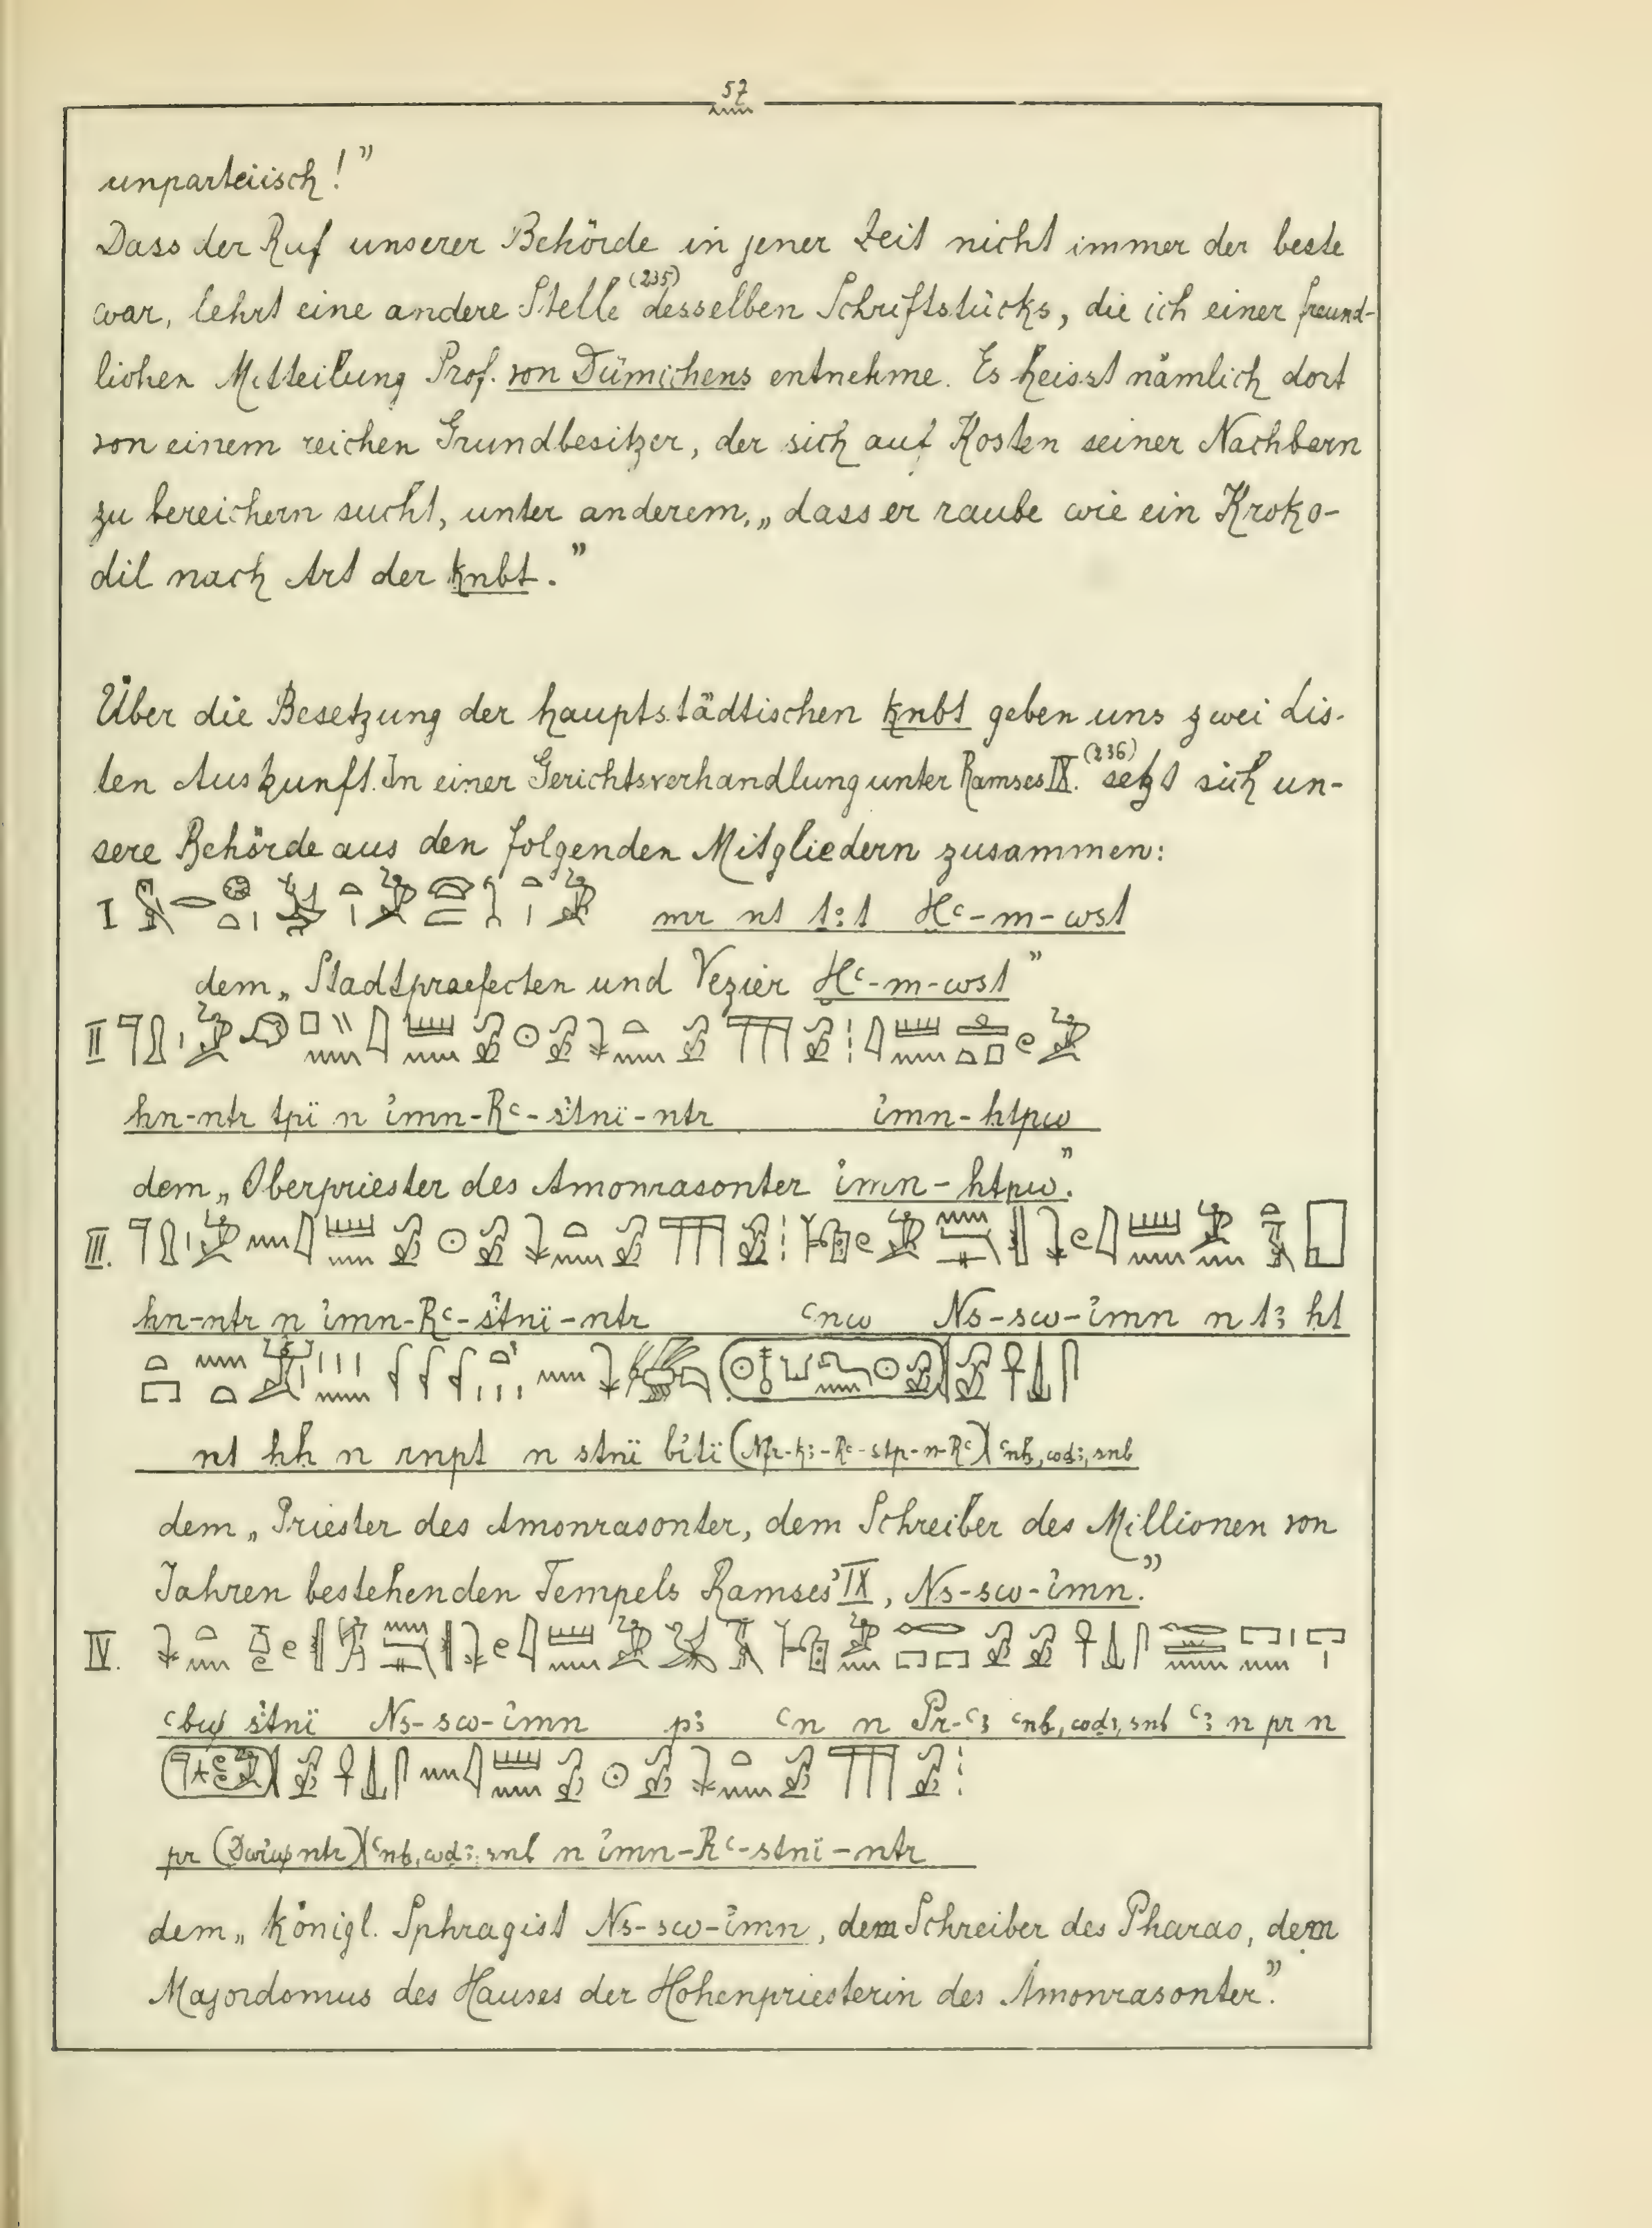 57
unparteiisch!”
Dass der Ruf unserer Behörde in jener Zeit nicht immer der beste
war, lehrt eine andere Stelle (235) desselben Schriftstücks, die ich einer freund-
lichen Mitteilung Prof. von Dümichens entnehme. Es heisst nämlich dort
von einem reichen Grundbesitzer, der sich auf Kosten seiner Nachbarn
zu bereichern sucht, unter anderem, „dass er raube wie ein Kroko-
dil nach Art der ḳnbt.”
Über die Besetzung der hauptstädtischen ḳnbt geben uns zwei Lis-
ten Auskunft. In einer Gerichtsverhandlung unter Ramses IX. (236) setzt sich un-
sere Behörde aus den folgenden Mitgliedern zusammen:
I mr nt t:t Ḫc-m-wst
dem „Stadtpraefecten und Vezier Ḫc-m-wst”
II
hn-ntr tpï n imn-Rc-stnï-ntr imn-htpw
dem „Oberpriester des Amonrasonter imn-htpw.”
III.
hn-ntr n imn-Rc-stnï-ntr cnw Ns-sw-imn n t3 ht
nt hh n rnpt n stnï bitï (Nfr-k3-Rc-stp-n-Rc) cnḫ, wd3, snb
dem „Priester des Amonrasonter, dem Schreiber des Millionen von
Jahren bestehenden Tempels Ramses’ IX, Ns-sw-imn.”
IV.
stnï Ns-sw-imn p3 cn n Pr-c3 cnḫ, wd3, snb c3 n pr n
pr ntr) cnḫ, wd3, snb n imn-Rc-stnï-ntr
dem „königl. Sphragist Ns-sw-imn, dem Schreiber des Pharao, dem
Majordomus des Hauses der Hohenpriesterin des Amonrasonter.”